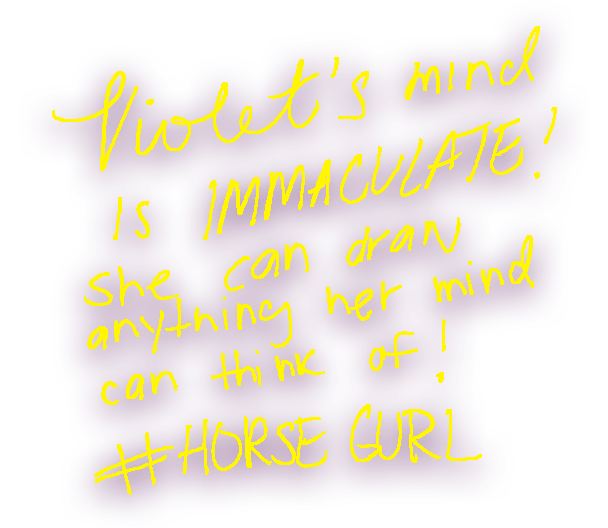 Violet's mind
is IMMACULATE!
she can draw
anything her mind
can think of!
#HORSE GURL